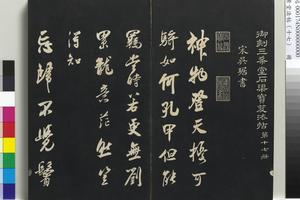 御刻三希堂石渠寶笈法帖 第十七冊
宋吳琚書
神物登天擾可
騎如何孔甲但能
羈當時若更無劉
累龍意茫然豈
得知
忘歸不覺鬢